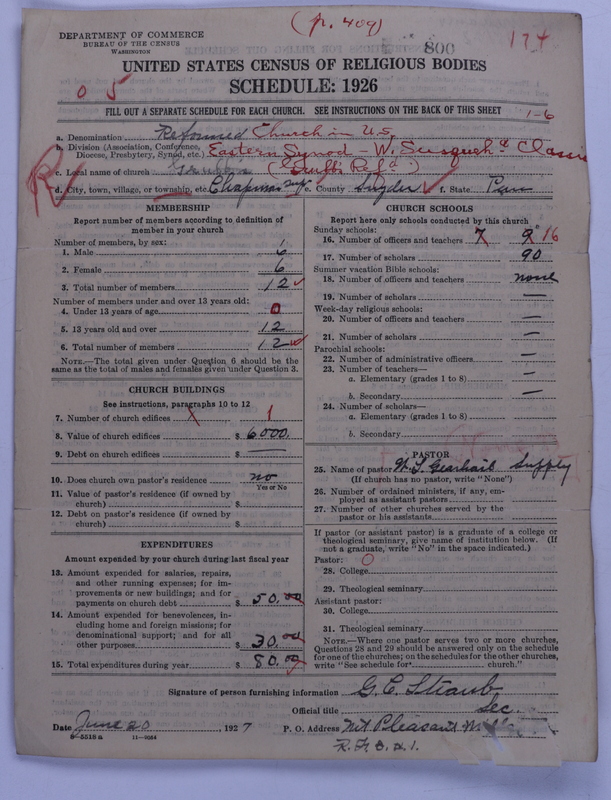 (p. 409)
DEPARTMENT OF COMMERCE
BUREAU OF THE CENSUS
WASHINGTON
800
174
UNITED STATES CENSUS OF RELIGIOUS BODIES
SCHEDULE: 1926
0 5
FILL OUT A SEPARATE SCHEDULE FOR EACH CHURCH. SEE INSTRUCTIONS ON THE BACK OF THIS SHEET
1-6
a. Denomination Reformed Church in U.S.
b. Division (Association, Conference, Diocese, Presbytery, Synod, etc.) Eastern Synod - W. Susqueh'a Classis
c. Local name of church
R
d. City, town, village, or township, etc. Chapman Twp e. County Snyder f. State Penn
MEMBERSHIP
Report number of members according to definition of
member in your church
Number of members, by sex:
1. Male 6
2. Female 6
3. Total number of members 12
Number of members under and over 13 years old:
4. Under 13 years of age 0
5. 13 years old and over 12
6. Total number of members 12
NOTE.—The total given under Question 6 should be
same as the total of males and females given under Question 3.
CHURCH BUILDINGS
See instructions, paragraphs 10 to 12
7. Number of church edifices 1
8. Value of church edifices $ 6000.
9. Debt on church edifices $ —
10. Does church own pastor's residence no
Yes or No
11. Value of pastor's residence (if owned by
church) $
12. Debt on pastor's residence (if owned by
church) $
EXPENDITURES
Amount expended by your church during last fiscal year
13. Amount expended for salaries, repairs,
and other running expenses; for im-
provements or new buildings; and for
payments on church debt $ 50.00
14. Amount expended for benevolences, in-
cluding home and foreign missions; for
denominational support; and for all
other purposes $ 30.00
15. Total expenditures during year $ 80.00
CHURCH SCHOOLS
Report here only schools conducted by this church
Sunday schools:
16. Number of officers and teachers 7 9 16
17. Number of scholars 90
Summer vacation Bible schools:
18. Number of officers and teachers none
19. Number of scholars —
Week-day religious schools:
20. Number of officers and teachers —
21. Number of scholars —
Parochial schools:
22. Number of administrative officers —
23. Number of teachers—
a. Elementary (grades 1 to 8) —
b. Secondary —
24. Number of scholars—
a. Elementary (grades 1 to 8)
b. Secondary
PASTOR
25. Name of pastor Supply
(If church has no pastor, write "None")
26. Number of ordained ministers, if any, em-
ployed as assistant pastors
27. Number of other churches served by the
pastor or his assistants
If pastor (or assistant pastor) is a graduate of a college or
theological seminary, give name of institution below. (If
not a graduate, write "No" in the space indicated.)
Pastor: 0
28. College
29. Theological seminary
Assistant pastor:
30. College
31. Theological seminary
NOTE.—Where one pastor serves two or more churches,
Questions 28 and 29 should be answered only on the schedule
for one of the churches; on the schedules for the other churches,
write "See schedule for church."
Signature of person furnishing information G. C. Straub
Official title Sec
Date June 20 1927 P. O. Address Mt Pleasant Mills
8-5518 a 11-9064